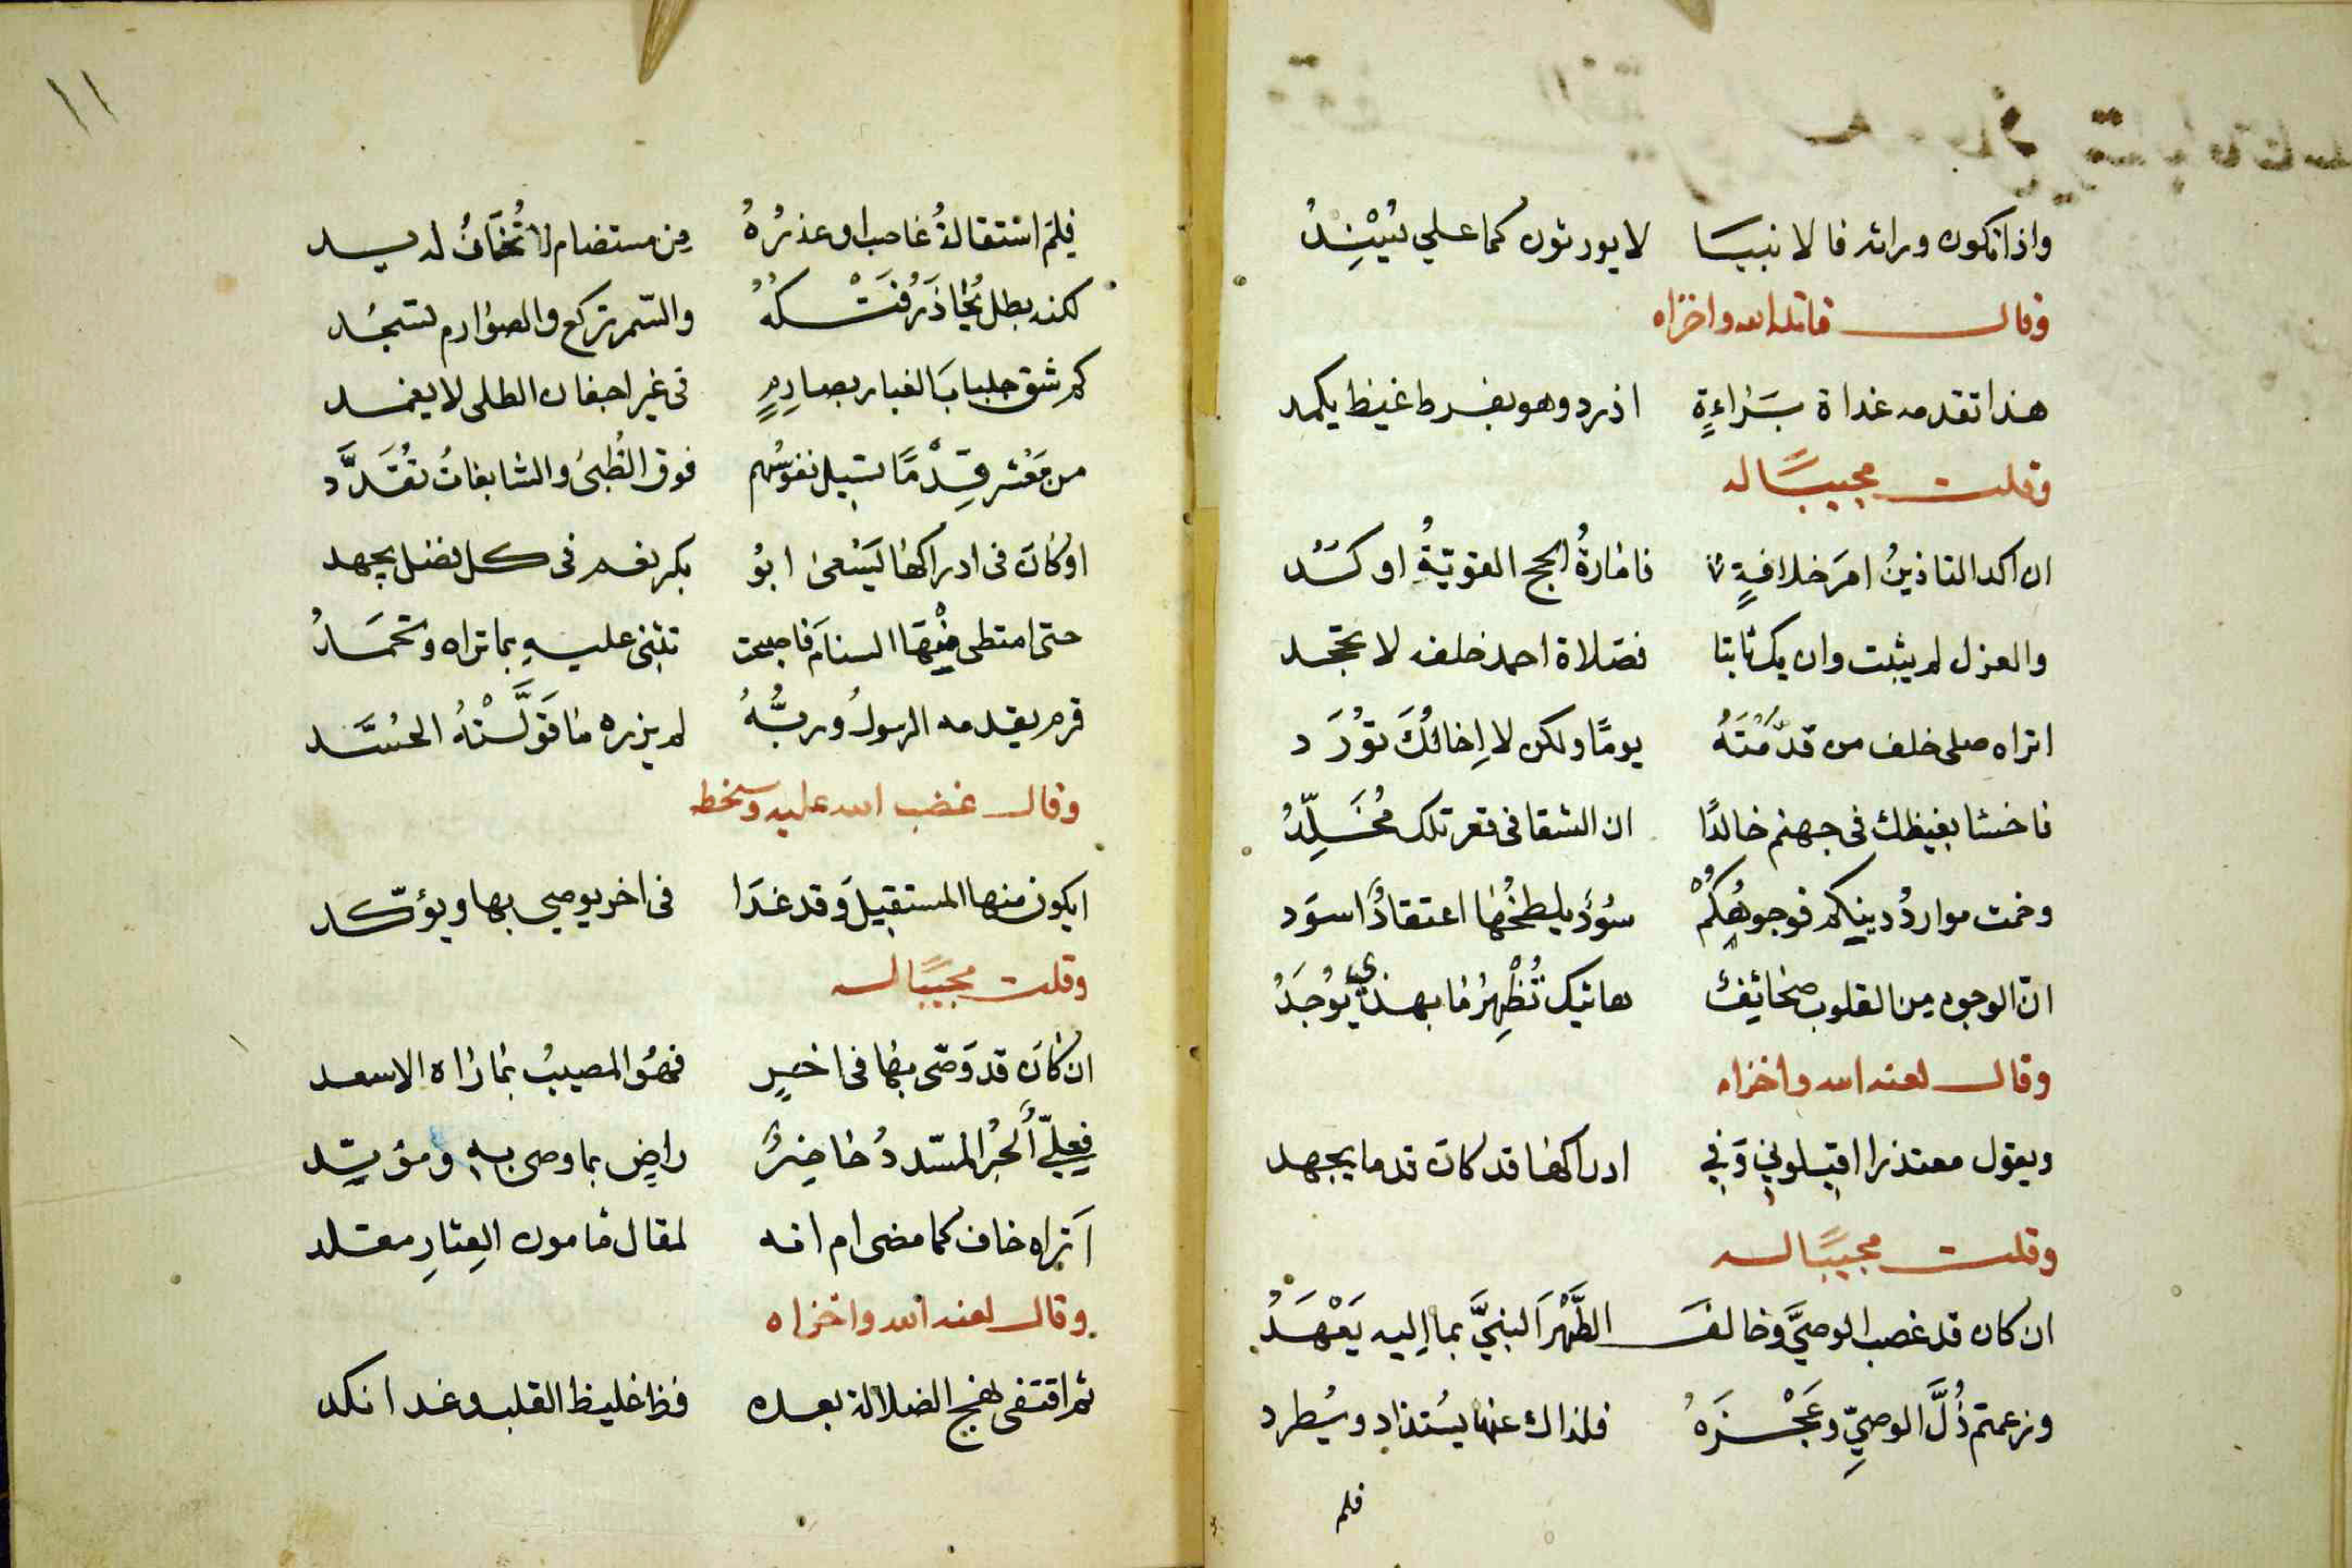 واذا تكون وراثه فالانبيا لا يورثون كما علي يُسْنِدُ
وقال قاتله الله واخزاه
هذا تقدمه غداة بَرَاءةٍ اذ رد وهو بفرط غيظ يكمد
وقلت مجيبًا له
ان اكد التاذينُ امرَ خلافةٍ فامَارةُ الحج القويّةُ اوكَدُ
والعزل لم يثبت وان يك ثابتا فصَلاة احمد خلفه لا تجحد
اتراه صلى خلف من قدّمْتَهُ يومًا ولكن لا اِخالُكَ تؤرَد
فاخسَا بغيظك في جهنم خالدًا ان الشقا في قعر تلك مُخَلِّدُ
وخمت مواردُ دينكم فوجوهُكُمْ سُودٌ يلطخُها اعتقادٌ اسوَد
انّ الوجوه مِن القلوب صَحَائِفٌ هاتيك تُظْهِرُ مَا بهذي يُوجَدُ
وقال لعنه الله واخزاه
ويقول معتذرا اقيلوني وَفي ادراكها قد كان قدما يجهد
وقلت مجيبًا له
ان كان قد غصب الوصيَّ وخالفَ الطُّهْرَ النبيَّ بما اِليه يَعْهَدُ
وزعمتم ذُلَّ الوصيِّ وعَجْزَهُ فلذاك عنها يُستذاد ويُطرد
فلم
١١
فلِمَ استقالةُ غاصب او عذرُهُ مِن مستضام لا تُخَافُ له يد
لكنه بطل يُحاذَرُ فَتْكُهُ والسّمر تركع والصوارم تسجُد
كم شق جلبابَ الغبار بصارِمٍ في غير اجفان الطلى لا يغمد
من مَعْشر قِدْمًا تسيل نفوسُهم فوق الظُبىٰ والسَّابغاتُ تُقَدَّد
اوكانَ في ادراكها يَسْعىٰ ابُو بكر نعم في كل فضل يجهد
حتى امتطى مِنْهَا السنامَ فاصبحت تثني عليهِ بما تراه وتحمَدُ
قرم يقدمه الرسولُ وربُّهُ لم يزره مَا قَوّلَتْهُ الحُسَّد
وقال غضب الله عليه وسخط
ايكون منها المستقيلَ وقد غدَا في اخر يوصي بها ويؤكّد
وقلت مجيبًا له
ان كانَ قد وَصّى بهَا في اخرٍ فهوَ المصيبُ بمَا رَاه الاسعد
فعليٌّ الحُبْر المسّددُ حَاضِرٌ راضٍ بما وصى بهِ ومؤيّد
اَتراه خاف كما مضى ام انه لمقال مَامون العِثارِ مقلد
وقال لعنه الله واخزاه
ثم اقتفى نهج الضلالة بعده فظا غليظ القلب وغد انكد